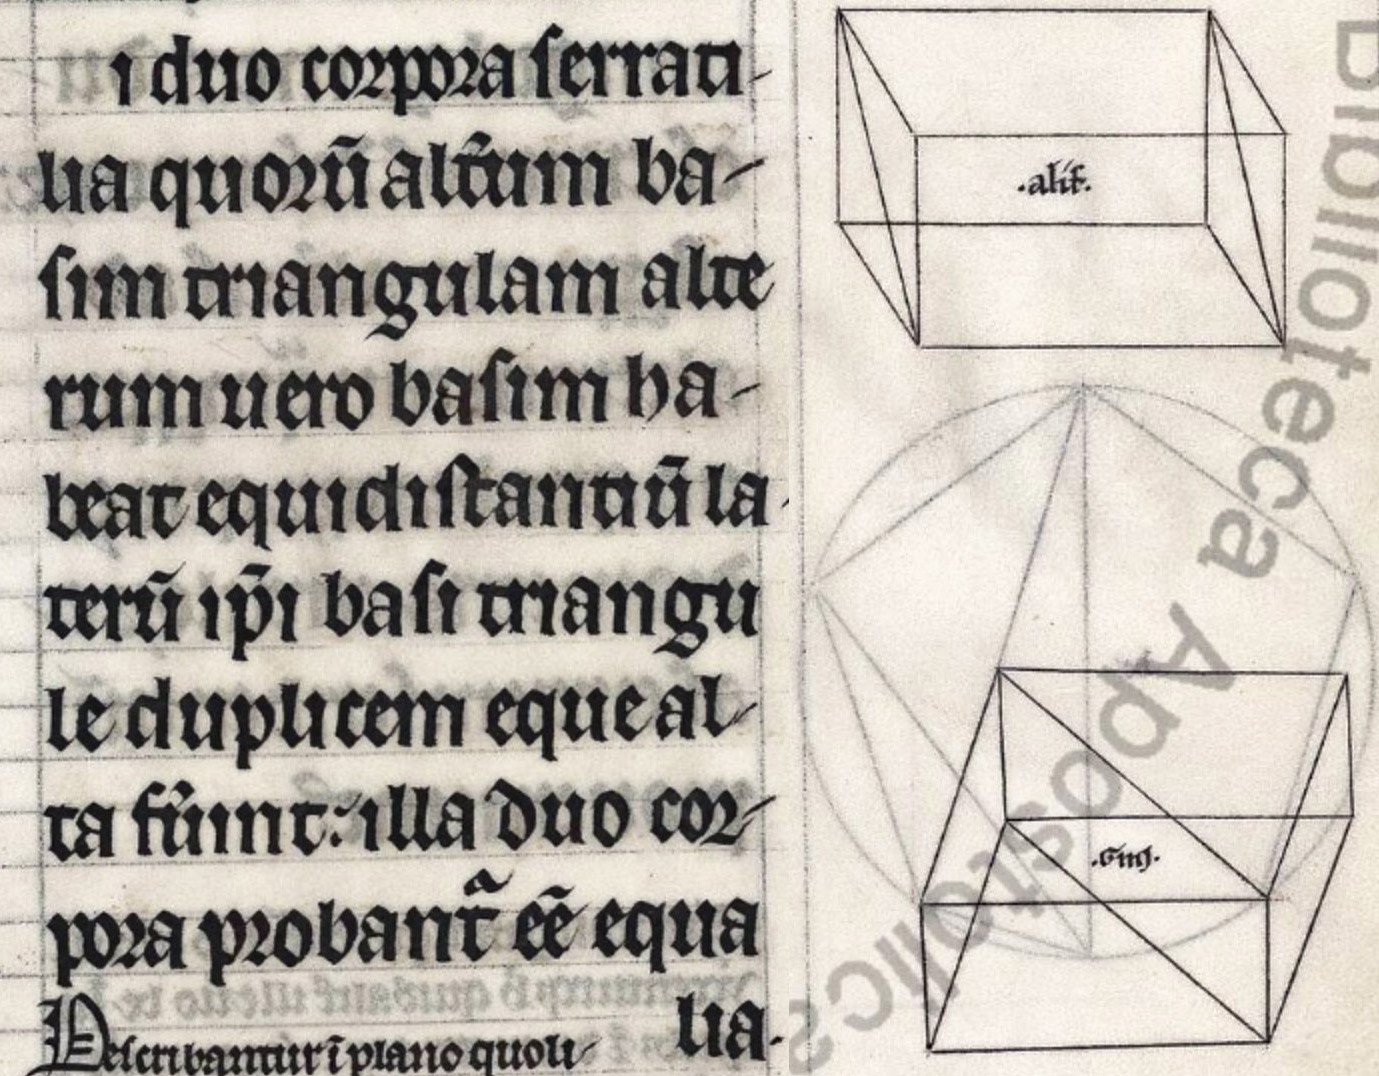 i duo corpora serrati
lia quorũ altũm ba-
sim triangulam alte
rum uero basim ha-
beat equidistantiũ la
terũ ip̃i basi triangu
le duplicem eque al-
ta fũint: illa duo cor-
pora probant᷑ eẽ equa
lia.
Describantur ĩ plano quoli-
.alit᷑.
Biblioteca Apostolica